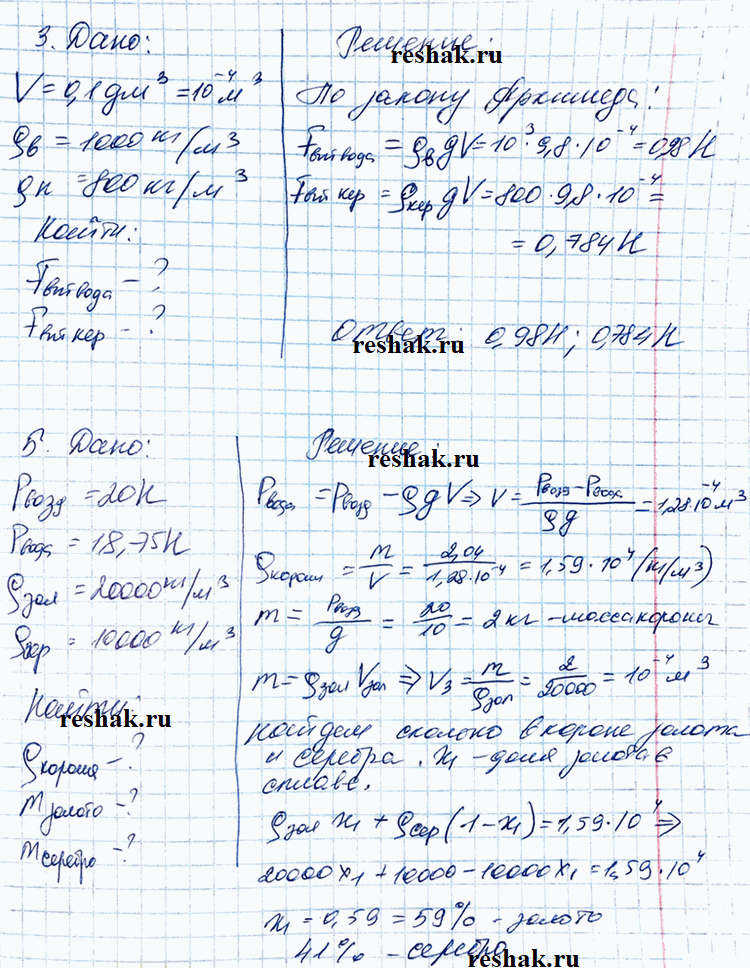 3. Дано:
V = 0,1 дм³ = 10⁻⁴ м³
ρв = 1000 кг/м³
ρк = 800 кг/м³
Найти:
Fвыт вода – ?
Fвыт кер – ?
Решение:
reshak.ru
По закону Архимеда:
Fвыт вода = ρв gV = 10³·9,8·10⁻⁴ = 0,98 Н
Fвыт кер = ρкер gV = 800·9,8·10⁻⁴ =
= 0,784 Н
Ответ: 0,98 Н; 0,784 Н
reshak.ru
5. Дано:
Pвозд = 20 Н
Pвода = 18,75 Н
ρзол = 20000 кг/м³
ρсер = 10000 кг/м³
Найти:
reshak.ru
ρкороны – ?
mзолото – ?
mсеребро – ?
Решение:
reshak.ru
Pвода = Pвозд – ρgV ⇒ V = (Pвозд – Pвода)/ρg = 1,28·10⁻⁴ м³
ρкороны = m/V = 2,04/1,28·10⁻⁴ = 1,59·10⁴ (кг/м³)
m = Pвозд/g = 20/10 = 2 кг – масса короны
m = ρзол Vзол ⇒ V₃ = m/ρзол = 2/20000 = 10⁻⁴ м³
найдем сколько в короне золота
и серебра. x₁ – доля золота в
сплаве.
ρзол x₁ + ρсер (1 – x₁) = 1,59·10⁴ ⇒
20000x₁ + 10000 – 10000x₁ = 1,59·10⁴
x₁ = 0,59 = 59% – золото
41% – серебро
reshak.ru